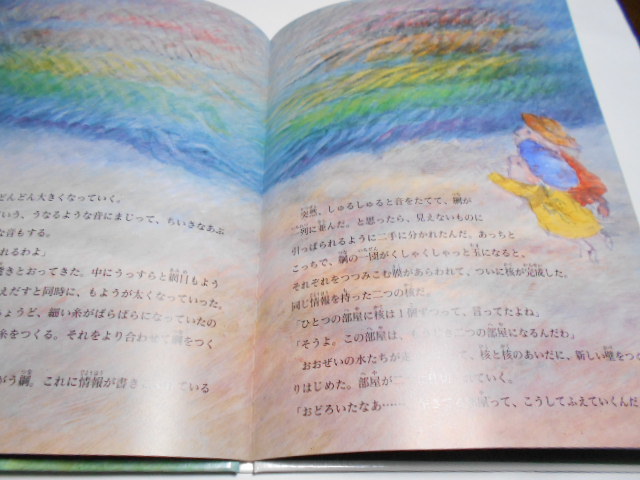 どんどん大きくなっていく。
いう、うなるような音にまじって、ちいさなあぶ
な音もする。
れるわよ」
きとおってきた。中にうっすらと網目もよう
えだすと同時に、もようが太くなっていった。
ょうど、細い糸がばらばらになっていたの
糸をつくる。それをより合わせて綱をつく
がう綱。これに情報が書き
ている
突然、しゅるしゅると音をたてて、綱が
一列に並んだ。と思ったら、見えないものに
引っぱられるように二手に分かれたんだ。あっちと
こっちで、綱の一団がくしゃくしゃっと玉になると、
それぞれをつつみこむ
があらわれて、ついに核が完成した。
同じ情報を持った二つの核だ。
「ひとつの部屋に核は1個ずつって、言ってたよね」
「そうよ。この部屋は、
二つの部屋になるんだわ」
おおぜいの水たちが走
て、核と核のあいだに、新しい壁をつく
りはじめた。部屋が二
ていく。
「おどろいたなあ……
って、こうしてふえていくんだ